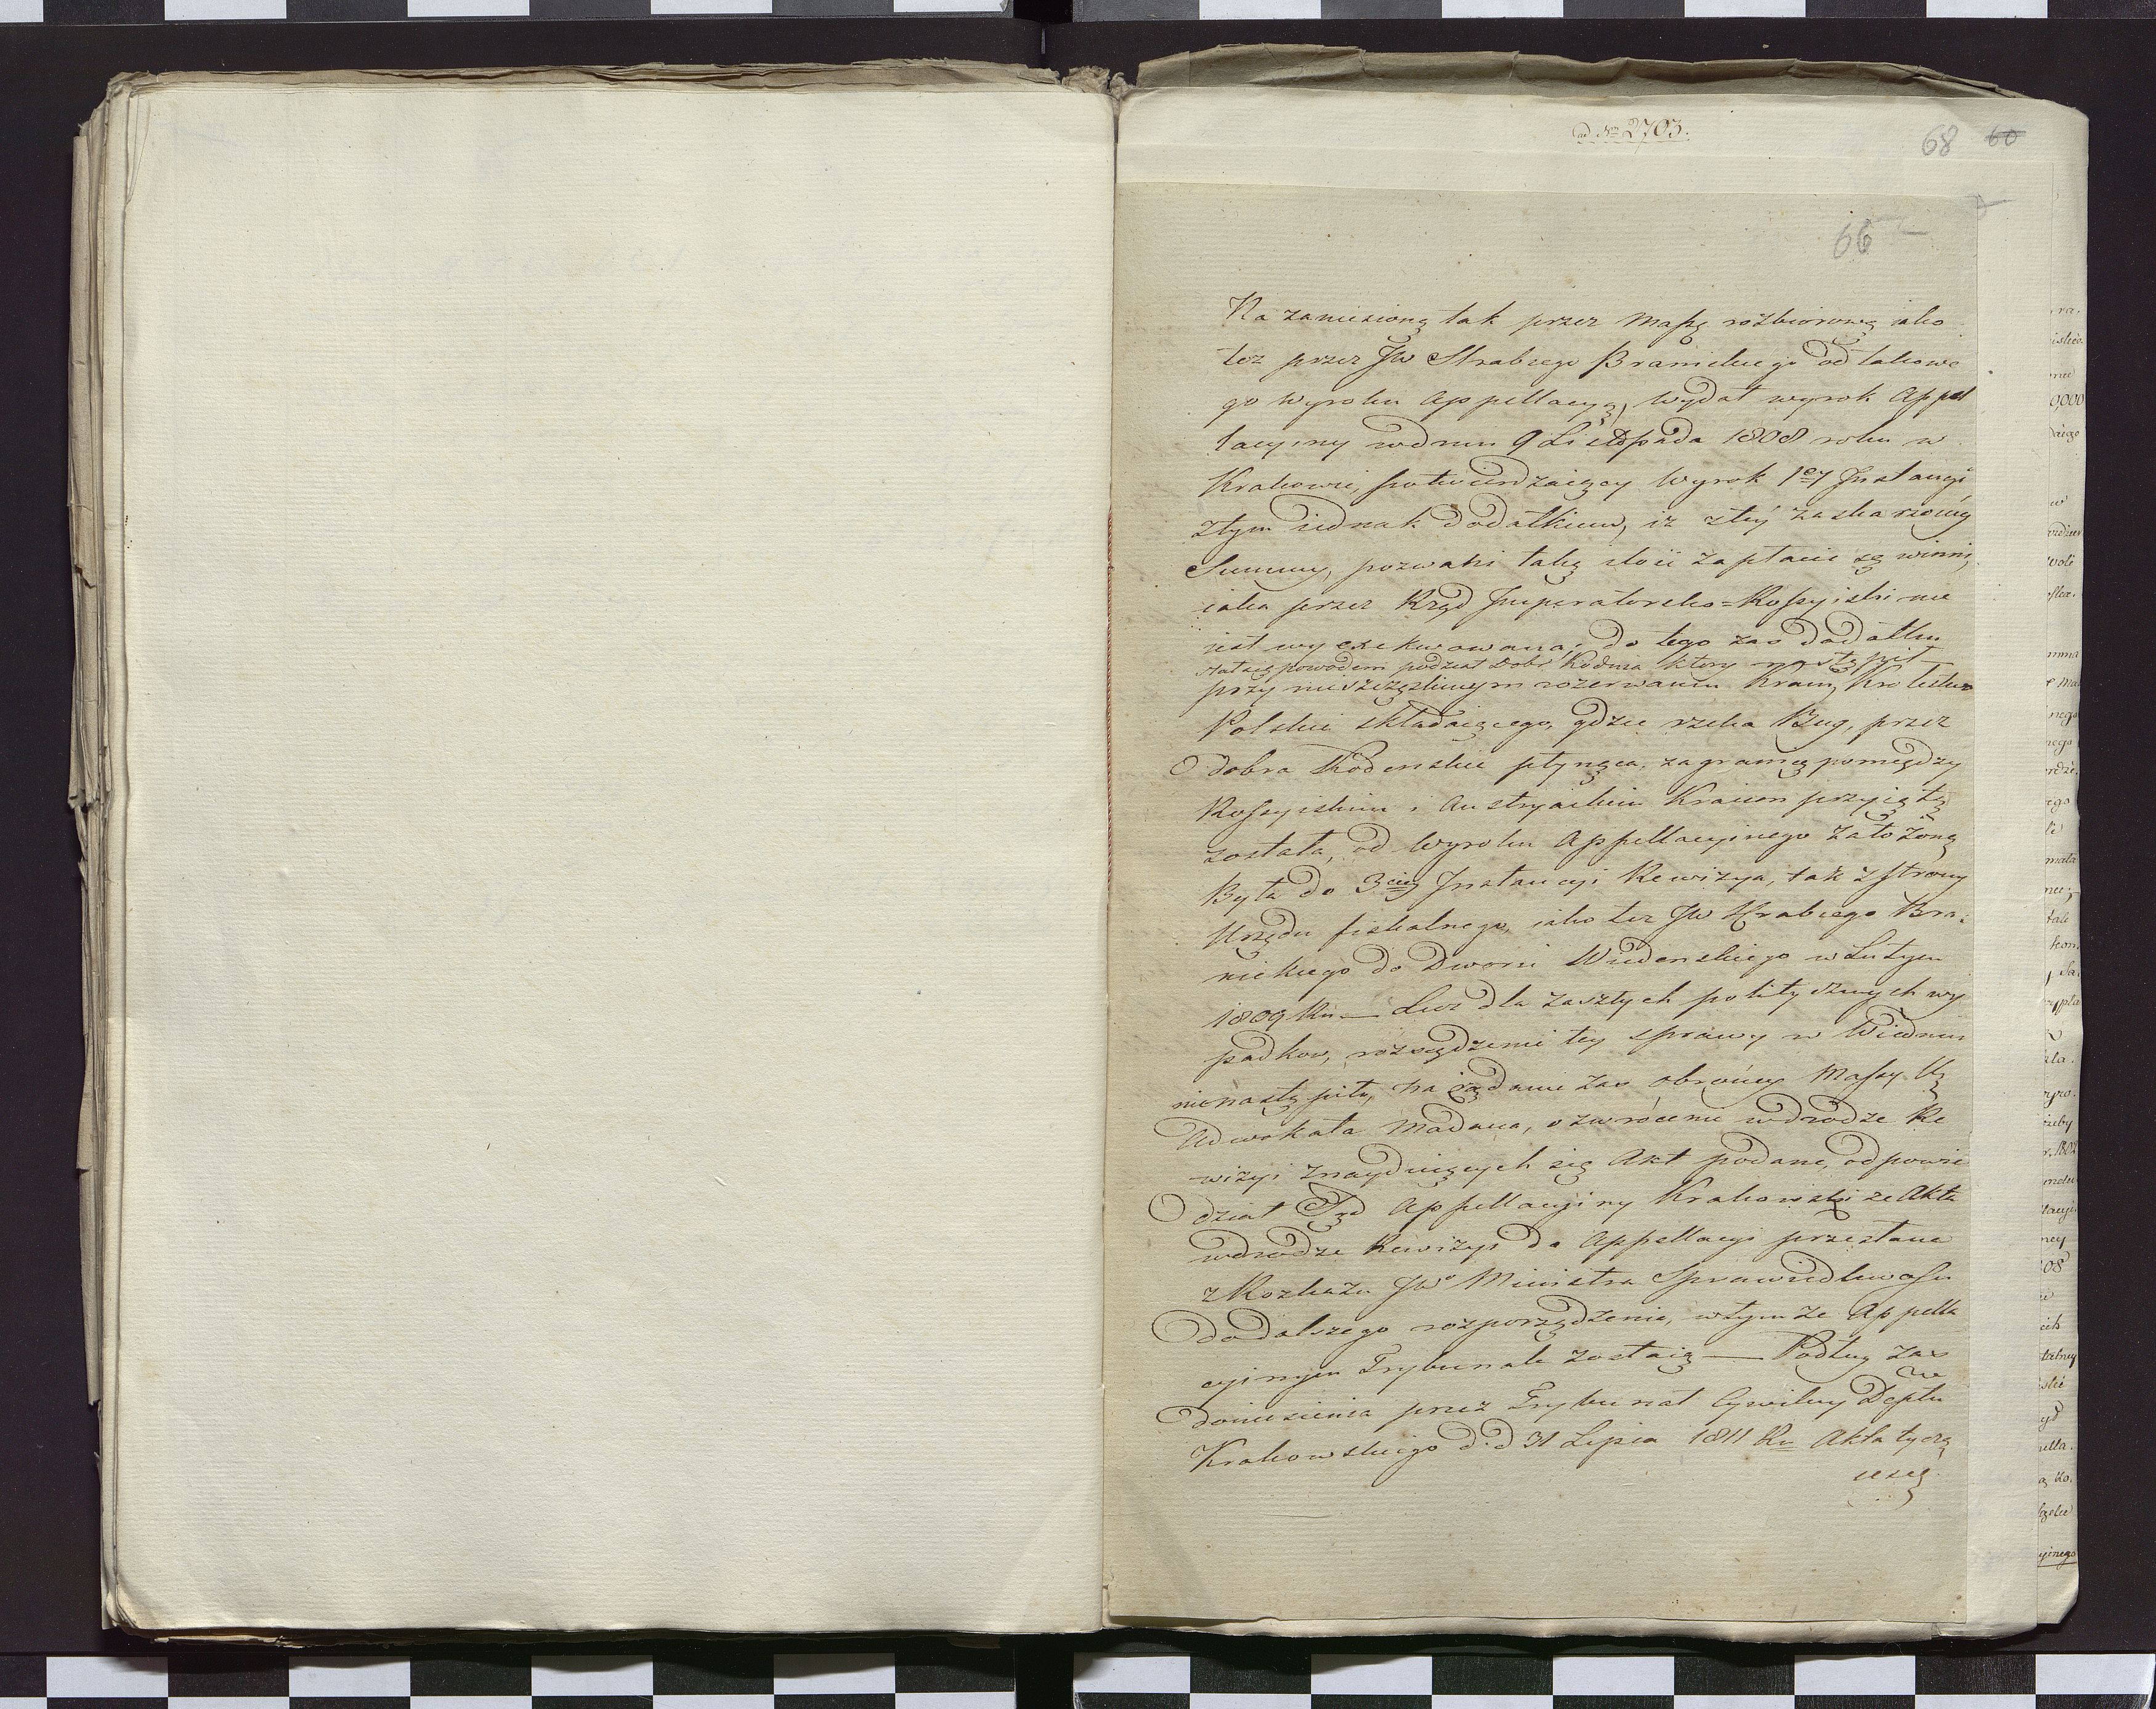 ad Nro 2703.
68 60
66
Na zaniesioną tak przez Massę rozbiorową iako
też przez JW Hrabiego Branickiego od takowe
go wyroku Appellacyą, wydał wyrok Appel
lacyiny w dniu 9 Listopada 1808 roku w
Krakowie, potwierdzaiący Wyrok 1ey Instancyi
z tym iednak dodatkiem, iż z tey zaskarżoney
Summy, pozwani taką ilość zapłacić są winni,
iaka przez Rząd Imperatorsko=Rossyiski nie
iest wyexekwowana; do tego zas dodatku
stał się powodem podział Dobr Kodnia ktory nastąpił
przy nieszczęśliwym rozerwaniu Kraiu, Krolestwo
Polskie składaiącego, gdzie rzeka Bug, przez
dobra Kodenskie płynąca, za granicę pomiędzy
Rossyiskim i Austryackim Kraiem przyiętą
została, od Wyroku Appellacyinego założoną
Była do 3ciey Instancyi Rewizya, tak z strony
Urzędu fiskalnego, iako też JW Hrabiego Bra=
nickiego do Dworu Wiedenskiego w Lutym
1809 Ru — Lecz dla zaszłych politycznych wy
padkow, rozsądzenie tey sprawy w Wiedniu
nienastąpiło, na żądanie zas obrońcy Massy Ur
Adwokata Madana, o zwrócenie w drodze Re
wizyi znayduiących się Akt podane, odpowie
dział Sąd Appellacyiny Krakowski że Akta
w drodze Rewizyi do Appellacyi przesłane
z Rozkazu JWo Ministra Sprawiedliwości
do dalszego rozporządzenia, w tymże Appella
cyinym Trybunale zostaią — Podług zas
doniesienia przez Trybunał Cywilny Deptu
Krakowskiego d.d 31 Lipca 1811 Ru Akta tyczą
ce się